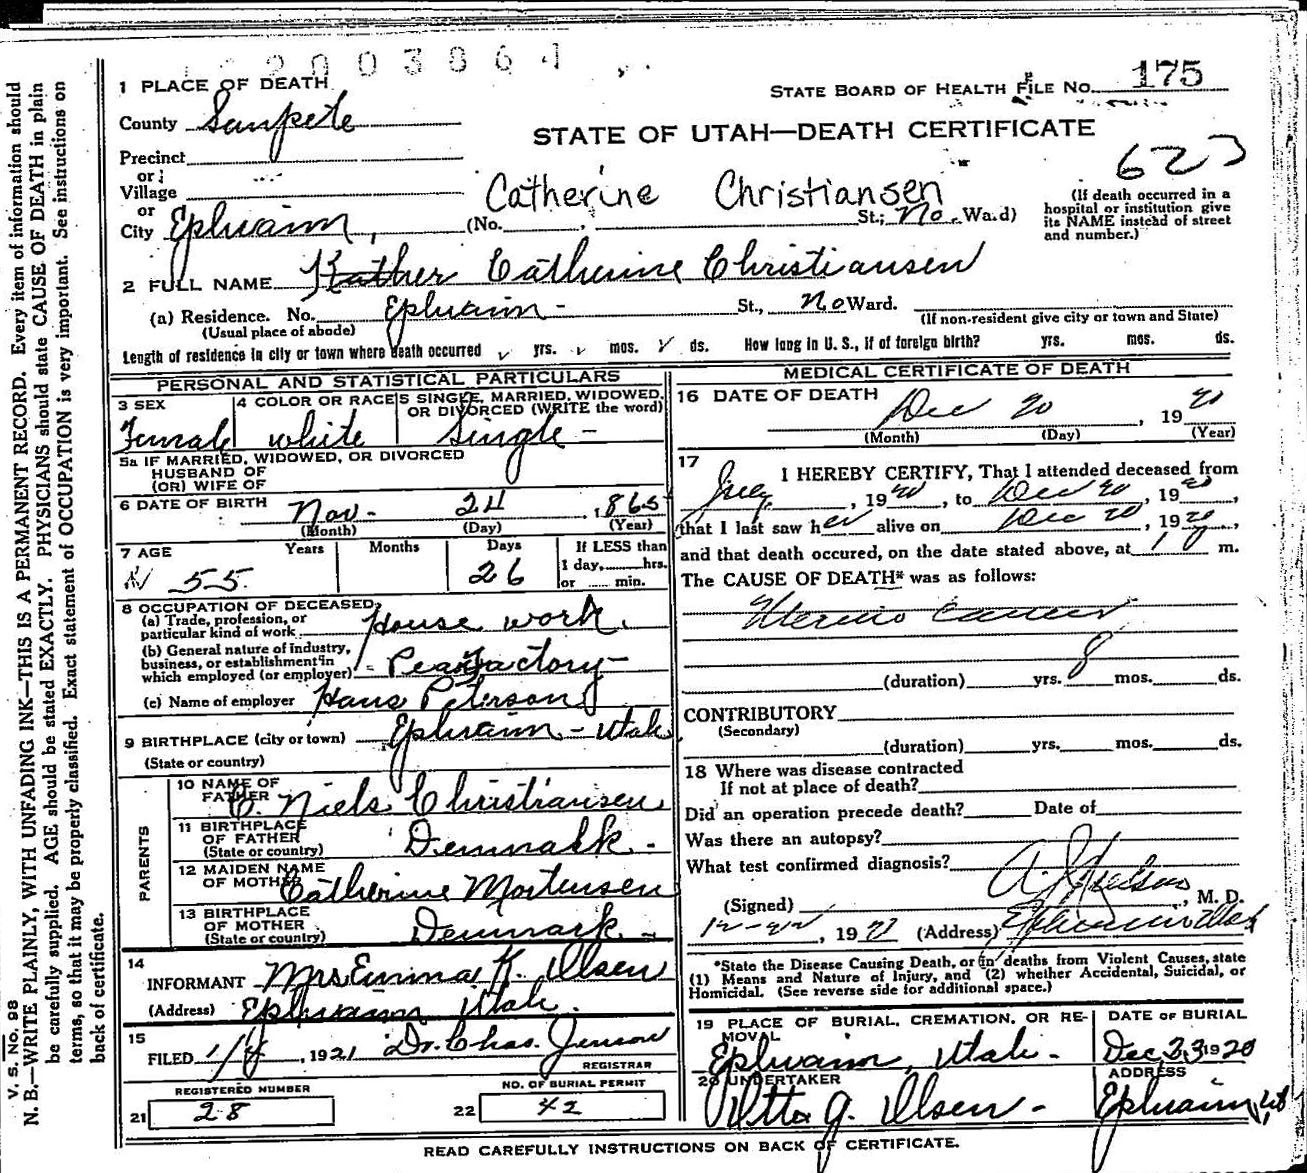 2003864
1 PLACE OF DEATH
STATE BOARD OF HEALTH FILE NO. 175
County Sanpete
STATE OF UTAH—DEATH CERTIFICATE
Precinct
or
Village
Catherine Christiansen
(If death occurred in a hospital or institution give its NAME instead of street and number.)
or
City Ephraim, (No. , St.; No. Ward)
2 FULL NAME Kather Catherine Christiansen
(a) Residence. No. Ephraim - St., No Ward.
(Usual place of abode)
(If non-resident give city or town and State)
Length of residence in city or town where death occurred yrs. mos. ds. How long in U. S., if of foreign birth? yrs. mos. ds.
PERSONAL AND STATISTICAL PARTICULARS
3 SEX
Female
4 COLOR OR RACE
white
5 SINGLE, MARRIED, WIDOWED, OR DIVORCED (WRITE the word)
Single -
5a IF MARRIED, WIDOWED, OR DIVORCED
HUSBAND OF
(OR) WIFE OF
6 DATE OF BIRTH Nov. 24, 1865
(Month) (Day) (Year)
7 AGE Years Months Days If LESS than
1 day, hrs.
or min.
55 26
8 OCCUPATION OF DECEASED
(a) Trade, profession, or particular kind of work House work.
(b) General nature of industry, business, or establishment in which employed (or employer) - Pea Factory -
(c) Name of employer Hans Peterson
9 BIRTHPLACE (city or town) Ephraim - Utah
(State or country)
PARENTS
10 NAME OF FATHER C. Niels Christiansen
11 BIRTHPLACE OF FATHER Denmark -
(State or country)
12 MAIDEN NAME OF MOTHER Catherine Mortensen
13 BIRTHPLACE OF MOTHER Denmark -
(State or country)
14
INFORMANT Mrs Emma K. Olsen
(Address) Ephraim Utah.
15
FILED , 1921 Dr. Chas. Jensen
REGISTRAR
REGISTERED NUMBER
21 28
NO. OF BURIAL PERMIT
22 42
MEDICAL CERTIFICATE OF DEATH
16 DATE OF DEATH Dec 20, 1920
(Month) (Day) (Year)
17
I HEREBY CERTIFY, That I attended deceased from
July, 1920, to Dec 20, 1920,
that I last saw her alive on Dec 20, 1920,
and that death occured, on the date stated above, at 1 m.
The CAUSE OF DEATH* was as follows:
Uterine cancer
(duration) yrs. 8 mos. ds.
CONTRIBUTORY
(Secondary)
(duration) yrs. mos. ds.
18 Where was disease contracted
If not at place of death?
Did an operation precede death? Date of
Was there an autopsy?
What test confirmed diagnosis?
(Signed) , M. D.
, 19 (Address) Ephraim Utah
*State the Disease Causing Death, or in deaths from Violent Causes, state
(1) Means and Nature of Injury, and (2) whether Accidental, Suicidal, or
Homicidal. (See reverse side for additional space.)
19 PLACE OF BURIAL, CREMATION, OR REMOVAL
Ephraim, Utah -
DATE OF BURIAL
Dec 23 1920
20 UNDERTAKER
Otto J. Olsen -
ADDRESS
Ephraim, Ut
READ CAREFULLY INSTRUCTIONS ON BACK OF CERTIFICATE.
V. S. No. 98
N. B.—WRITE PLAINLY, WITH UNFADING INK—THIS IS A PERMANENT RECORD. Every item of information should
be carefully supplied. AGE should be stated EXACTLY. PHYSICIANS should state CAUSE OF DEATH in plain
terms, so that it may be properly classified. Exact statement of OCCUPATION is very important. See instructions on
back of certificate.